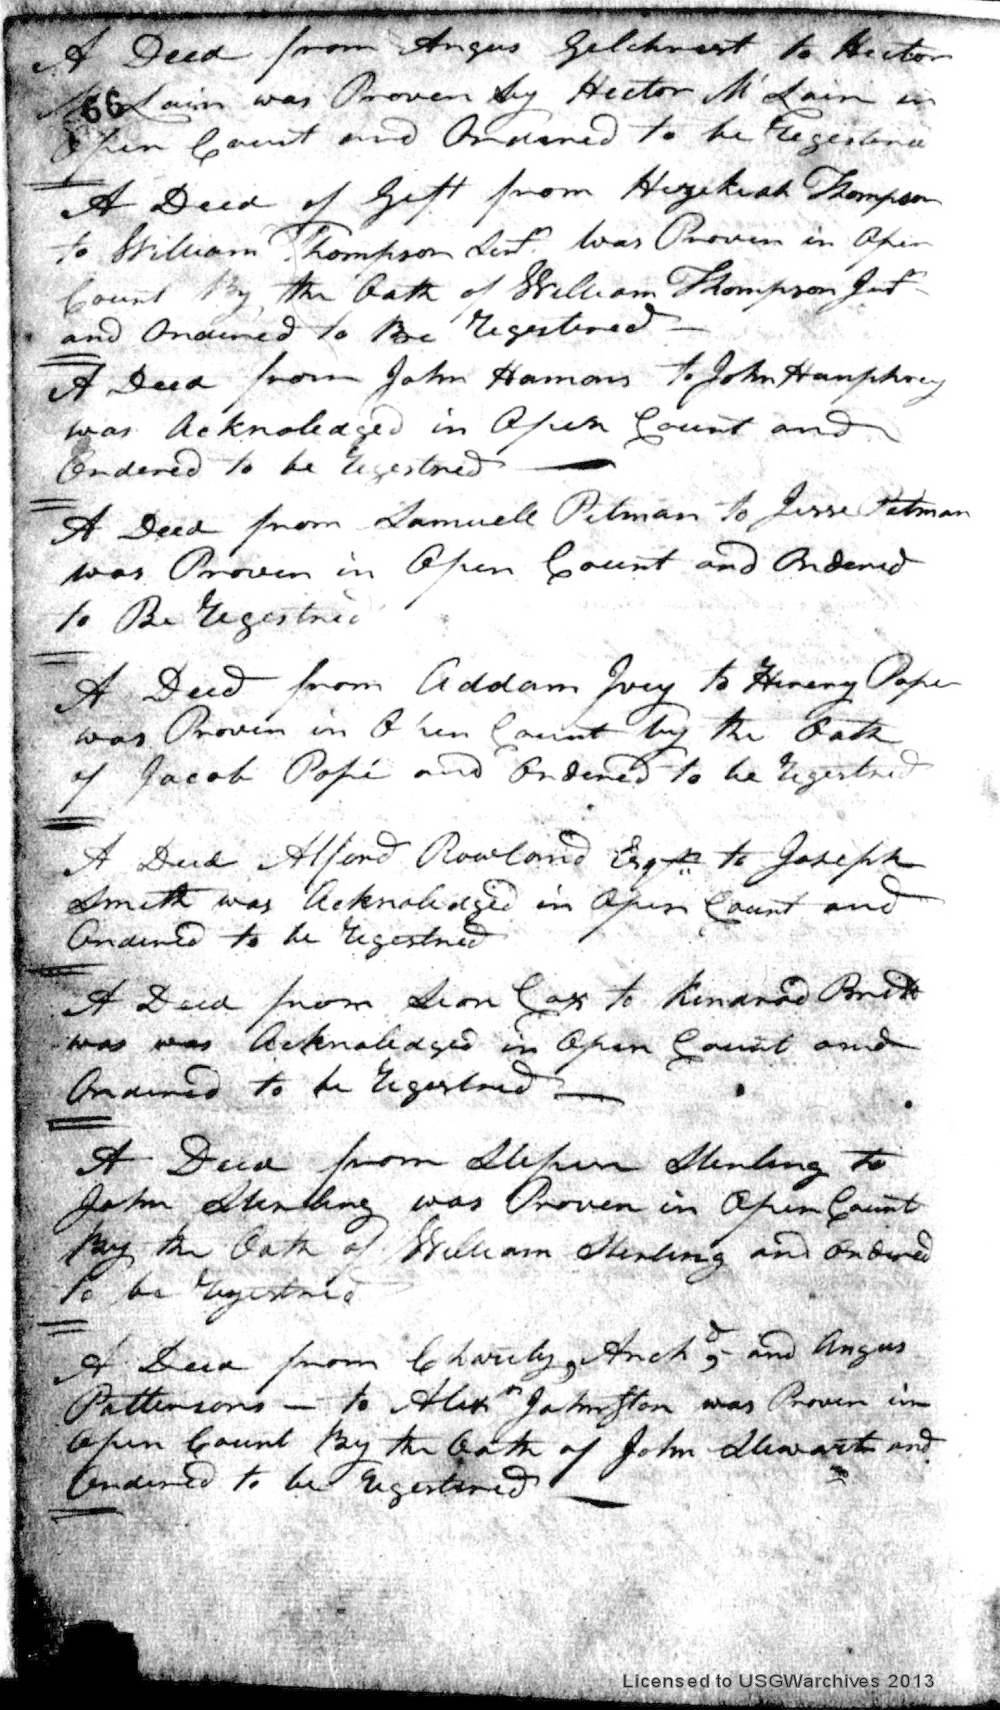 A Deed from Angus Gilchrest to Hector
66
McLain was Proven by Hector McLain in
Open Court and Ordered to be Regestered
A Deed of Gift from Hezekiah Thompson
to William Thompson Senr. Was Proven in Open
Court By the Oath of William Thompson Junr.
and Ordered to Be Regestered
A Deed from John Hamons to John Humphrey
was Acknoledged in Open Court and
Ordered to be Regestred
A Deed from Samuell Pitman to Jesse Pitman
was Proven in Open Court and Ordered
to Be Regestred
A Deed from Addam Ivey to Henery Pope
was Proven in Open Court by the Oath
of Jacob Pope and Ordered to be Regestred
A Deed Alford Rowland Esqr to Joseph
Smith was Acknoledged in Open Court and
Ordered to be Regestred
A Deed from Sion Cox to Kindrad Britt
was was Acknoledged in Open Court and
Ordered to be Regestred
A Deed from Stepen Sterling to
John Sterling was Proven in Open Court
By the Oath of William Sterling and Ordered
to be Regestred
A Deed from Charity, Archd, and Angus
Pattersons — to Alexr Johnston was Proven in
Open Court By the Oath of John Stewart and
Ordered to be Regestered
Licensed to USGWarchives 2013